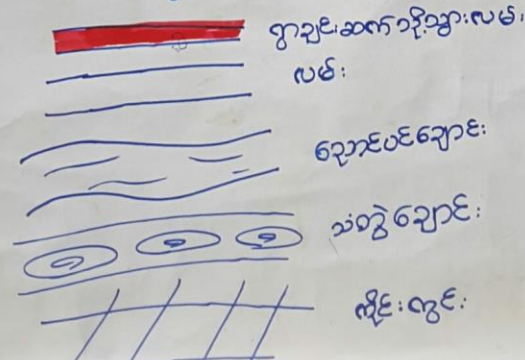 ရွာချင်းဆက်သို့သွားလမ်း
လမ်း
ညောင်ပင်ချောင်း
သံတွဲချောင်း
ကိုင်းကွင်း